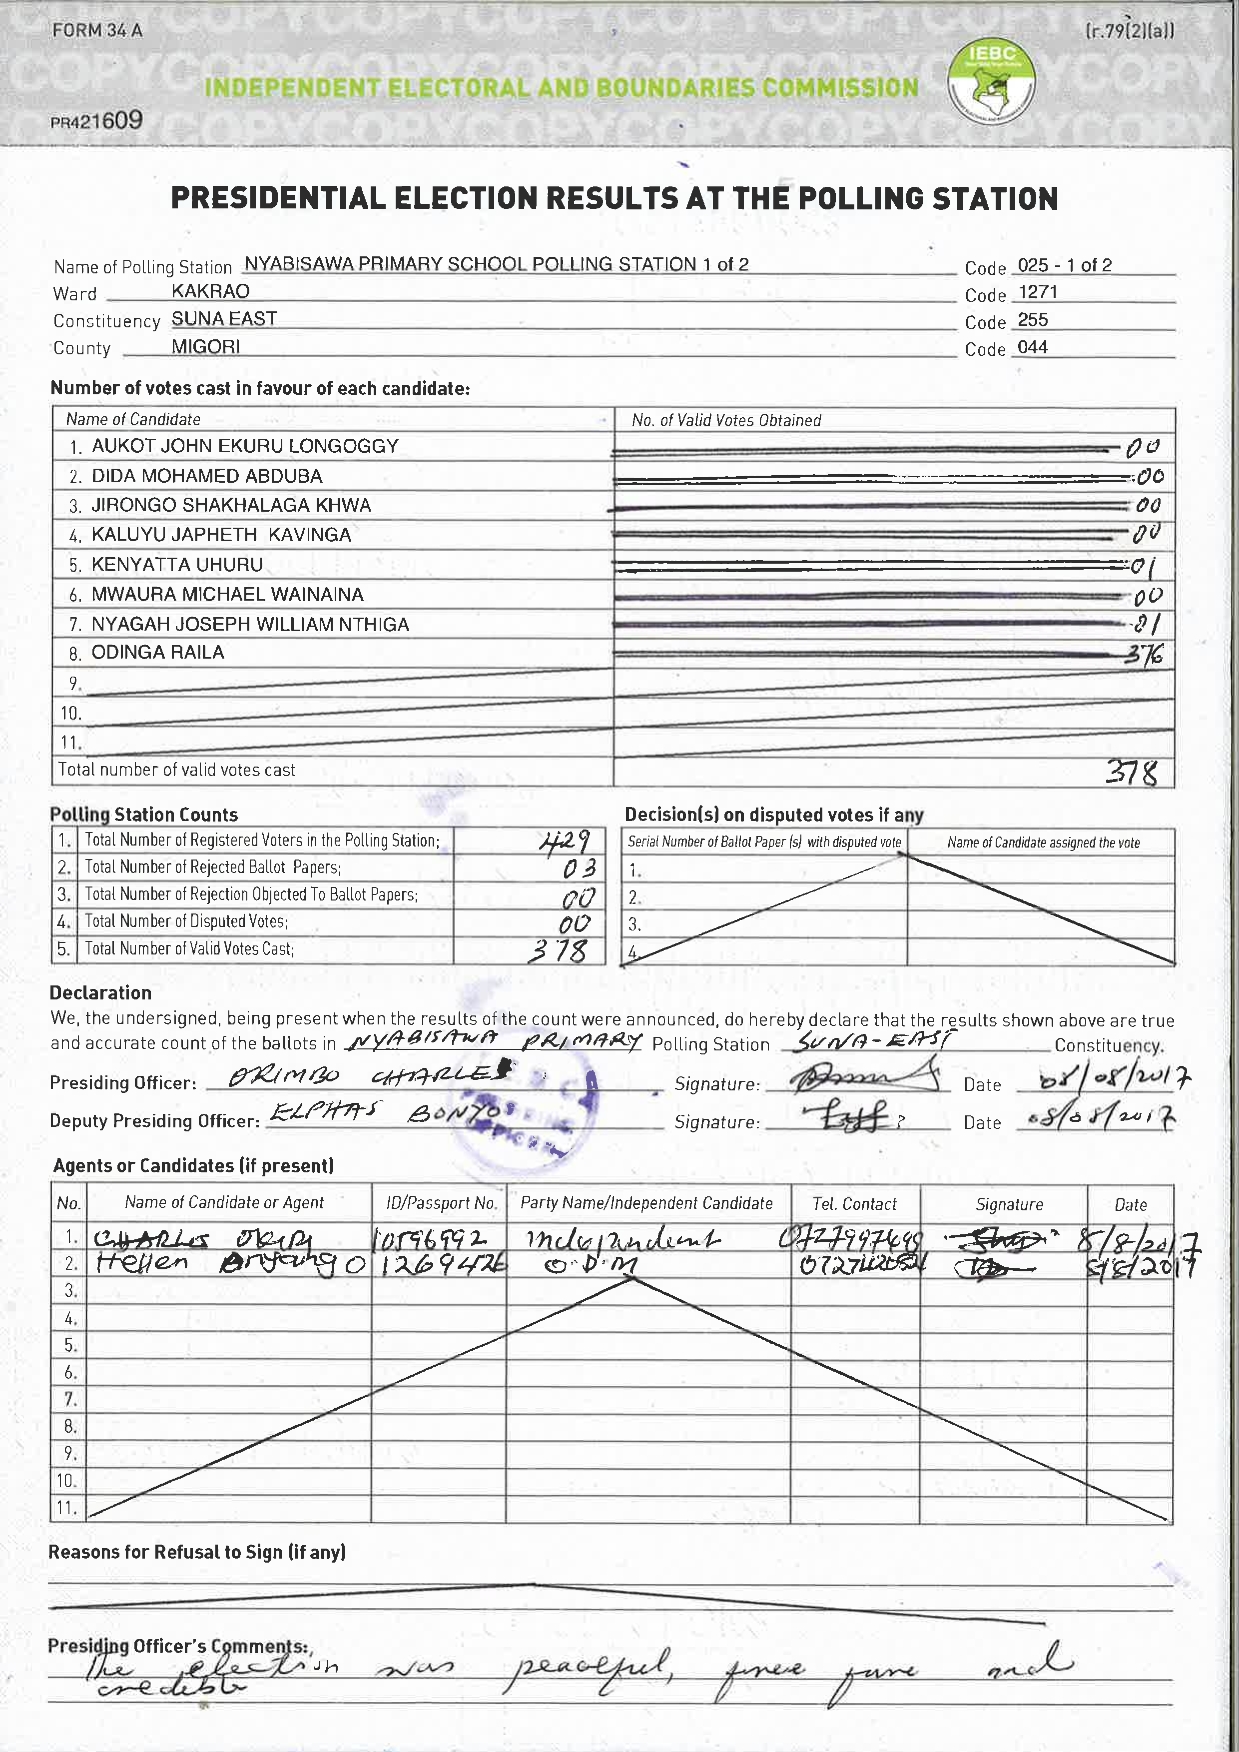 FORM 34 A
(r.79(2)(a))
IEBC
INDEPENDENT ELECTORAL AND BOUNDARIES COMMISSION
PR421609
PRESIDENTIAL ELECTION RESULTS AT THE POLLING STATION
Name of Polling Station NYABISAWA PRIMARY SCHOOL POLLING STATION 1 of 2 Code 025 - 1 of 2
Ward KAKRAO Code 1271
Constituency SUNA EAST Code 255
County MIGORI Code 044
Number of votes cast in favour of each candidate:
Name of Candidate No. of Valid Votes Obtained
1. AUKOT JOHN EKURU LONGOGGY 00
2. DIDA MOHAMED ABDUBA 00
3. JIRONGO SHAKHALAGA KHWA 00
4. KALUYU JAPHETH KAVINGA 00
5. KENYATTA UHURU 01
6. MWAURA MICHAEL WAINAINA 00
7. NYAGAH JOSEPH WILLIAM NTHIGA 01
8. ODINGA RAILA 376
9.
10.
11.
Total number of valid votes cast 378
Polling Station Counts Decision(s) on disputed votes if any
1. Total Number of Registered Voters in the Polling Station; 429 Serial Number of Ballot Paper (s) with disputed vote Name of Candidate assigned the vote
2. Total Number of Rejected Ballot Papers; 03 1.
3. Total Number of Rejection Objected To Ballot Papers; 00 2.
4. Total Number of Disputed Votes; 00 3.
5. Total Number of Valid Votes Cast; 378 4.
Declaration
We, the undersigned, being present when the results of the count were announced, do hereby declare that the results shown above are true
and accurate count of the ballots in NYABISAWA PRIMARY Polling Station SUNA-EAST Constituency.
Presiding Officer: ORIMBO CHARLES Signature: Date 08/08/2017
Deputy Presiding Officer: ELPHAS BONYO Signature: Date 08/08/2017
Agents or Candidates (if present)
No. Name of Candidate or Agent ID/Passport No. Party Name/Independent Candidate Tel. Contact Signature Date
1. CHARLES 10596992 independent 0727997699 8/8/2017
2. Hellen Anyango 1269426 O.D.M 8/8/2017
3.
4.
5.
6.
7.
8.
9.
10.
11.
Reasons for Refusal to Sign (if any)
Presiding Officer's Comments:
The election was peaceful, free fare and
credible